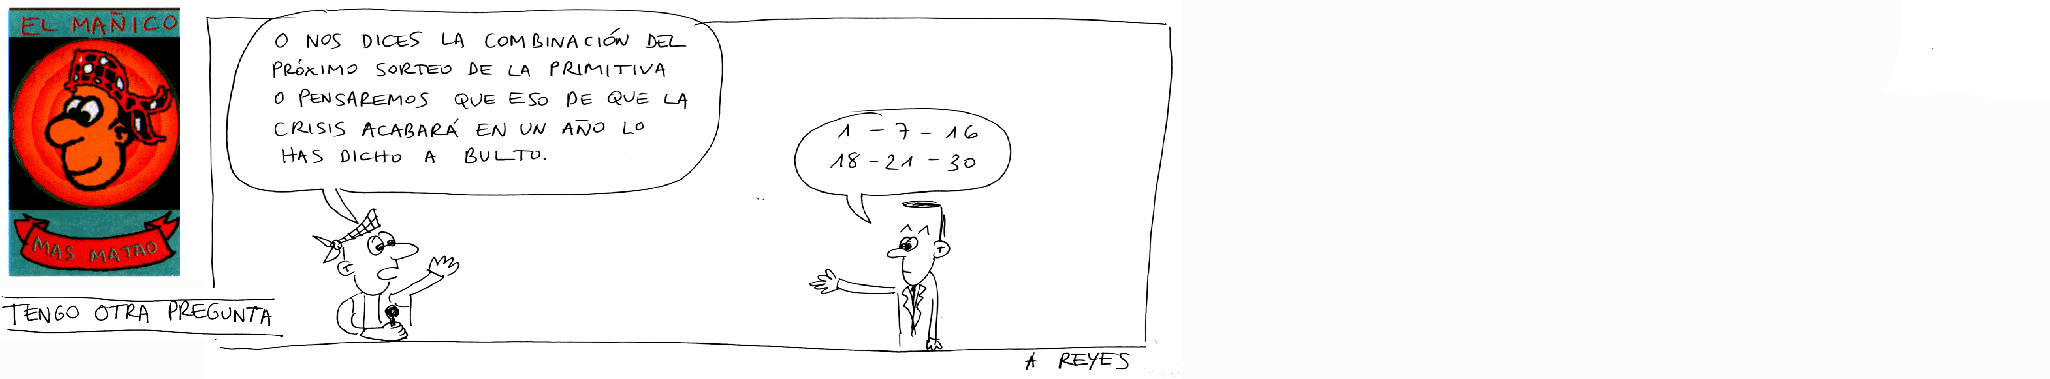 EL MAÑICO
MAS MATAO
TENGO OTRA PREGUNTA
O NOS DICES LA COMBINACIÓN DEL
PRÓXIMO SORTEO DE LA PRIMITIVA
O PENSAREMOS QUE ESO DE QUE LA
CRISIS ACABARÁ EN UN AÑO LO
HAS DICHO A BULTO.
1 - 7 - 16
18 - 21 - 30
A REYES